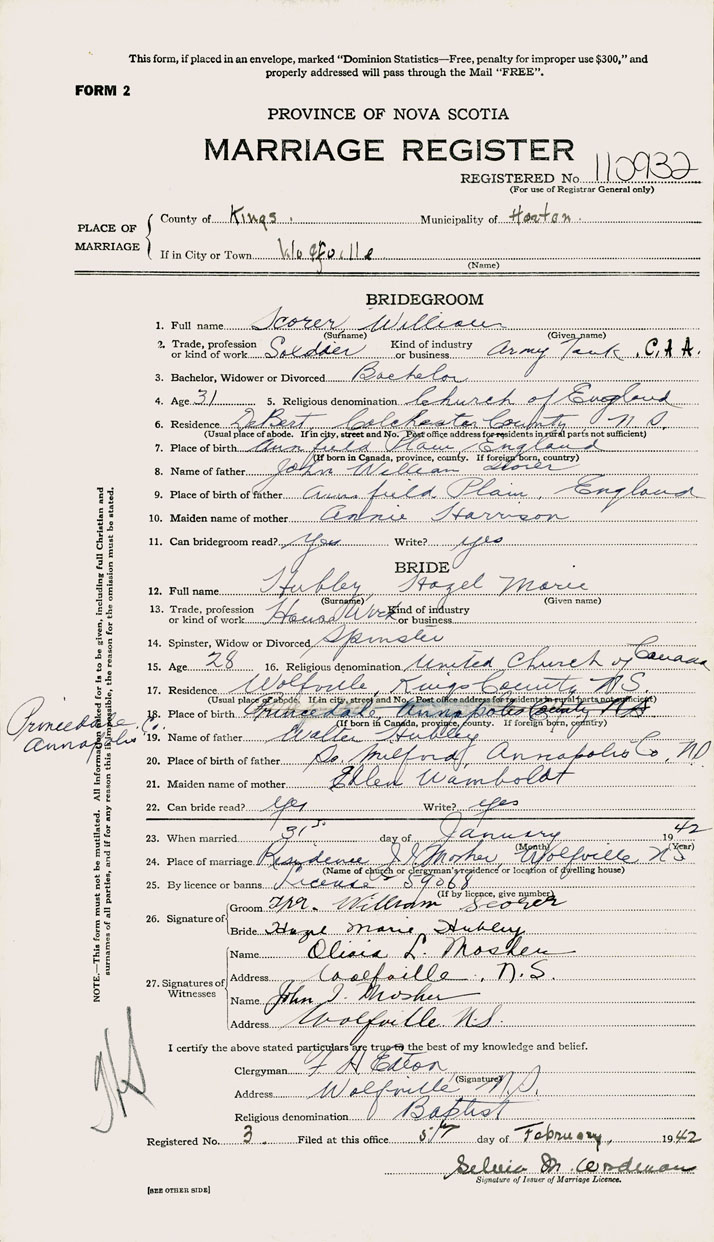 This form, if placed in an envelope, marked "Dominion Statistics—Free, penalty for improper use $300," and
properly addressed will pass through the Mail "FREE".
FORM 2
PROVINCE OF NOVA SCOTIA
MARRIAGE REGISTER
REGISTERED No. 110932
(For use of Registrar General only)
PLACE OF MARRIAGE
County of Kings. Municipality of Horton.
If in City or Town Wolfville
(Name)
BRIDEGROOM
1. Full name Scorer, William
(Surname) (Given name)
2. Trade, profession or kind of work Soldier Kind of industry or business Army Tank. C.A.A.
3. Bachelor, Widower or Divorced Bachelor
4. Age 31 5. Religious denomination Church of England
6. Residence DeBert, Colchester County N.S.
(Usual place of abode. If in city, street and No. Post office address for residents in rural parts not sufficient)
7. Place of birth Annfield Plain England
(If born in Canada, province, county. If foreign born, country)
8. Name of father John William Scorer
9. Place of birth of father Annfield Plain, England
10. Maiden name of mother Annie Harrison
11. Can bridegroom read? Yes Write? yes
BRIDE
12. Full name Hubley, Hazel Marie
(Surname) (Given name)
13. Trade, profession or kind of work House Work Kind of industry or business
14. Spinster, Widow or Divorced Spinster
15. Age 28 16. Religious denomination United Church of Canada
17. Residence Wolfville, Kings County N.S.
(Usual place of abode. If in city, street and No. Post office address for residents in rural parts not sufficient)
18. Place of birth Princedale, Annapolis County N.S.
Princedale Co.
Annapolis
(If born in Canada, province, county. If foreign born, country)
19. Name of father Walter Hubley
20. Place of birth of father So. Milford, Annapolis Co, N.S.
21. Maiden name of mother Ellen Wamboldt
22. Can bride read? yes Write? yes
23. When married 31st day of January 1942
(Month) (Year)
24. Place of marriage Residence J. I. Mosher, Wolfville N.S.
(Name of church or clergyman's residence or location of dwelling house)
25. By licence or banns License 59068
(If by licence, give number)
26. Signature of
Groom Tpr. William Scorer
Bride Hazel Marie Hubley
27. Signatures of Witnesses
Name Olivia L. Mosher
Address Wolfville, N.S.
Name John I. Mosher
Address Wolfville N.S.
I certify the above stated particulars are true to the best of my knowledge and belief.
Clergyman F H Eaton
(Signature)
Address Wolfville N.S.
Religious denomination Baptist
Registered No. 3. Filed at this office 5th day of February, 1942
Selvia M. Wordman
Signature of Issuer of Marriage Licence.
[SEE OTHER SIDE]
NOTE.—This form must not be mutilated. All information asked for is to be given, including full Christian and
surnames of all parties, and if for any reason this is impossible, the reason for the omission must be stated.